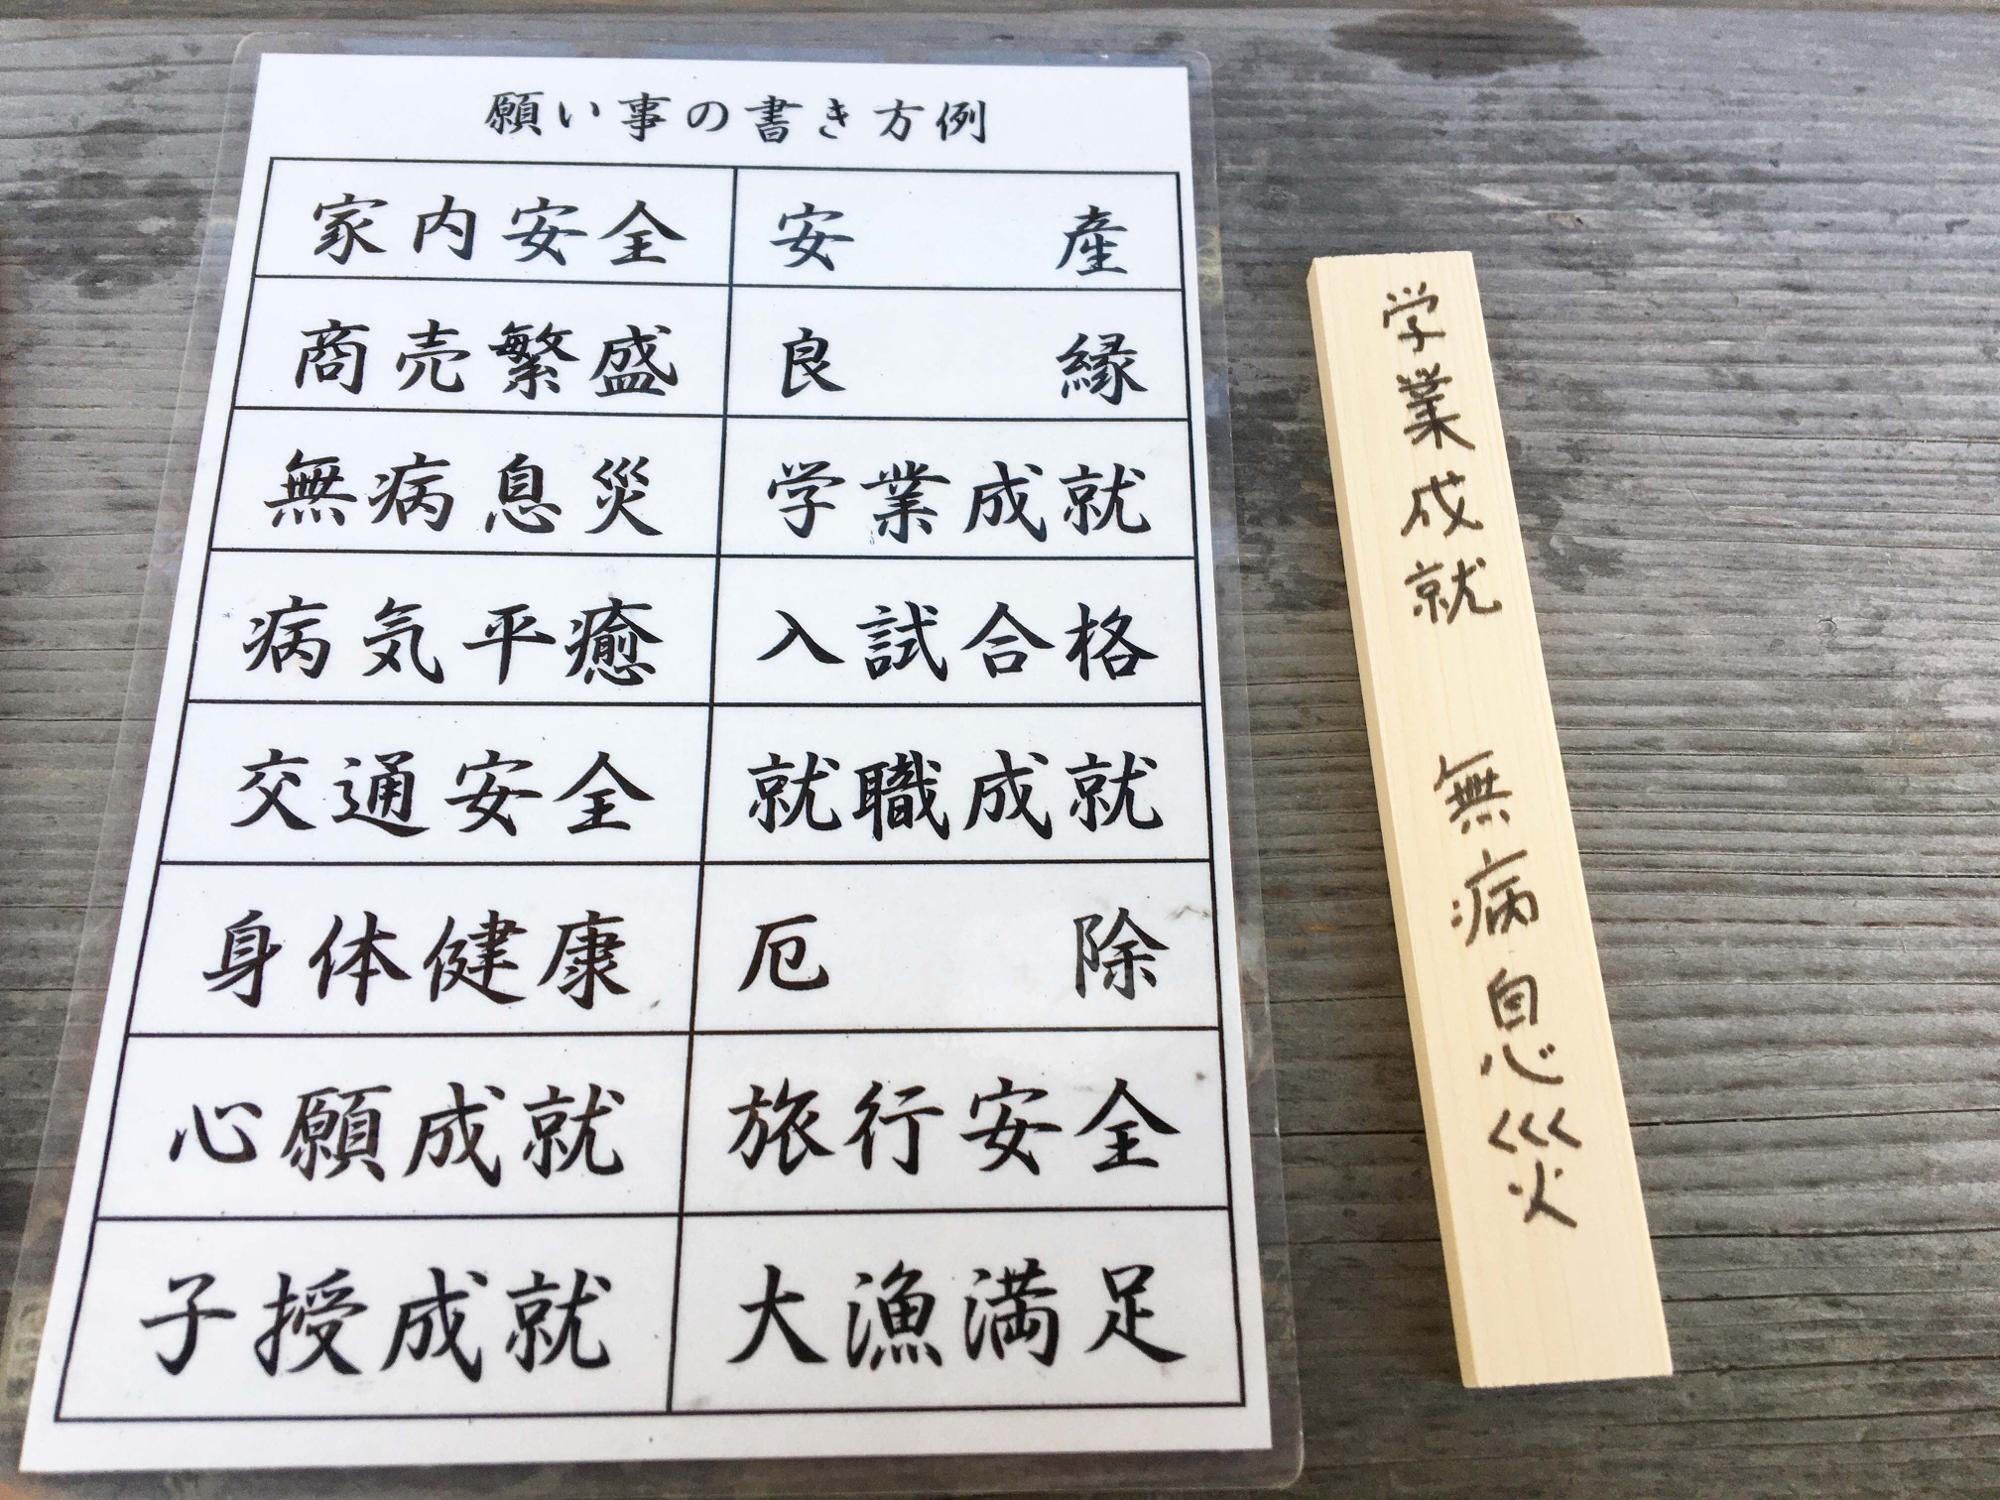 願い事の書き方例
家内安全
安産
商売繁盛
良縁
無病息災
学業成就
病気平癒
入試合格
交通安全
就職成就
身体健康
厄除
心願成就
旅行安全
子授成就
大漁満足
学業成就 無病息災